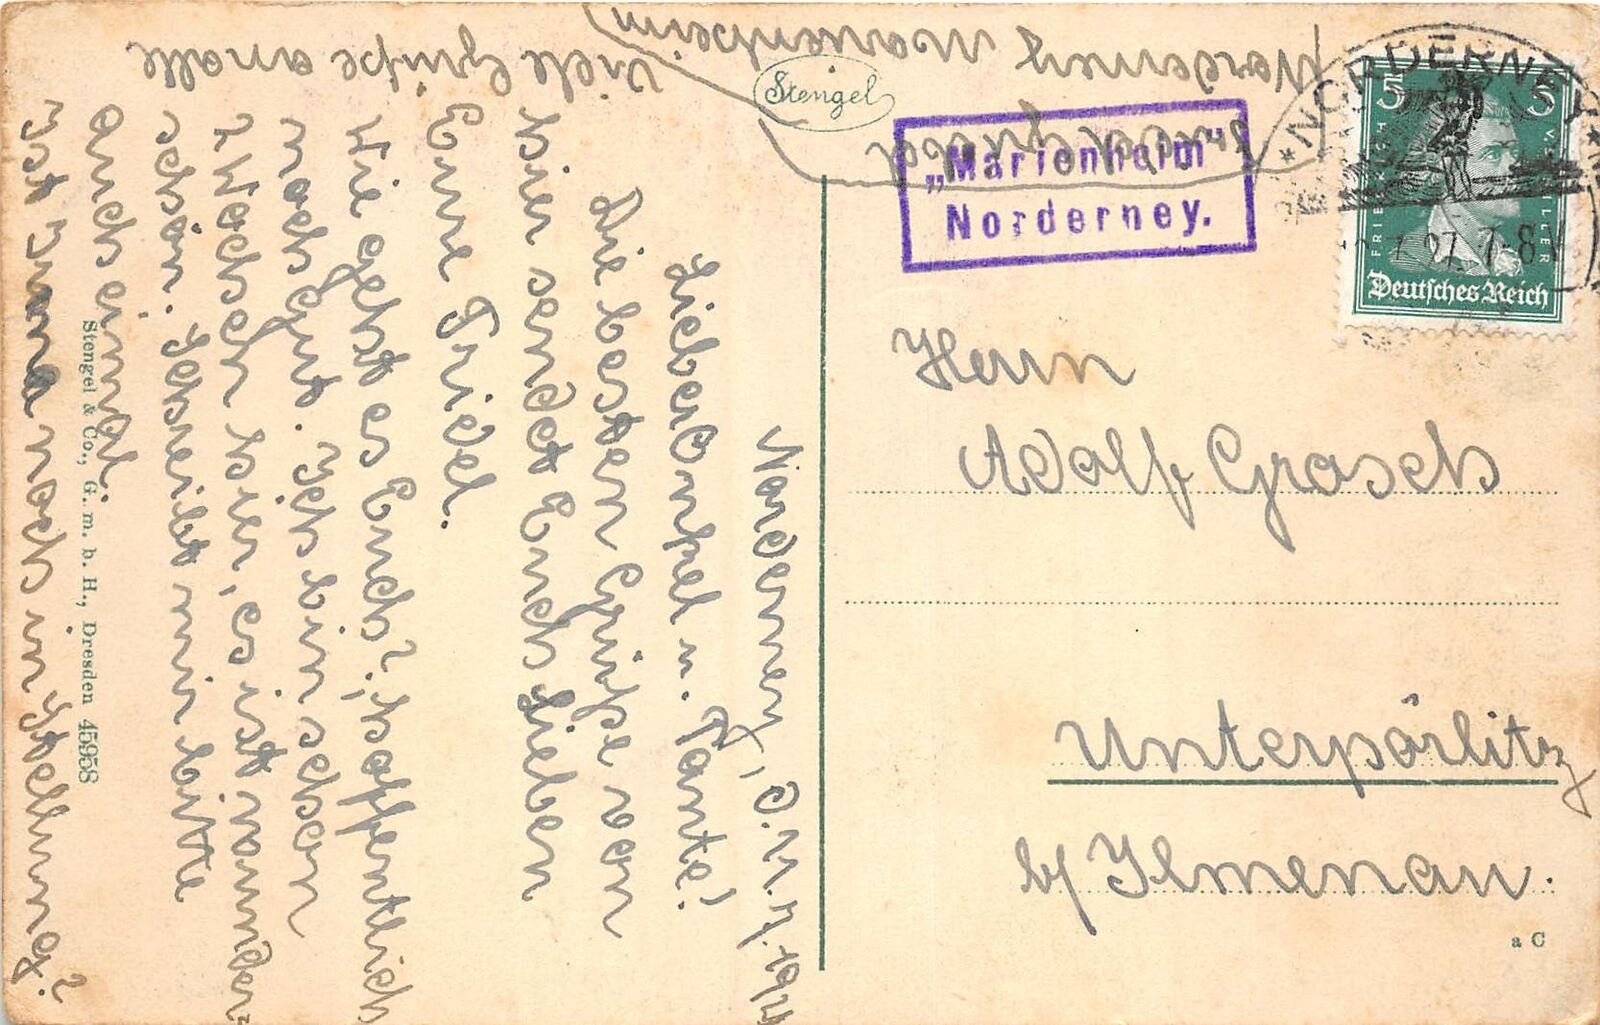 Norderney, d. 11. 7. 1927
Lieber Onkel u. Tante!
Die besten Grüße von
hier sendet Euch Lieben
Eure Friedl.
Wie geht es Euch?, hoffentlich
noch gut. Ich bin schon
2 Wochen hier, es ist wunder-
schön. Schreibt mir bitte
auch einmal.
Ist Irma noch in Stellung?
Viele Grüße an alle
Norderney Marienheim
Stengel
„Marienheim“
Norderney.
*NORDERNEY*
7. 27. 7-8 V
5 5
FRIEDRICH V. SCHILLER
Deutsches Reich
Herrn
Adolf Grosch
Unterpörlitz
b/ Ilmenau.
Stengel & Co., G. m. b. H., Dresden 45958
a C